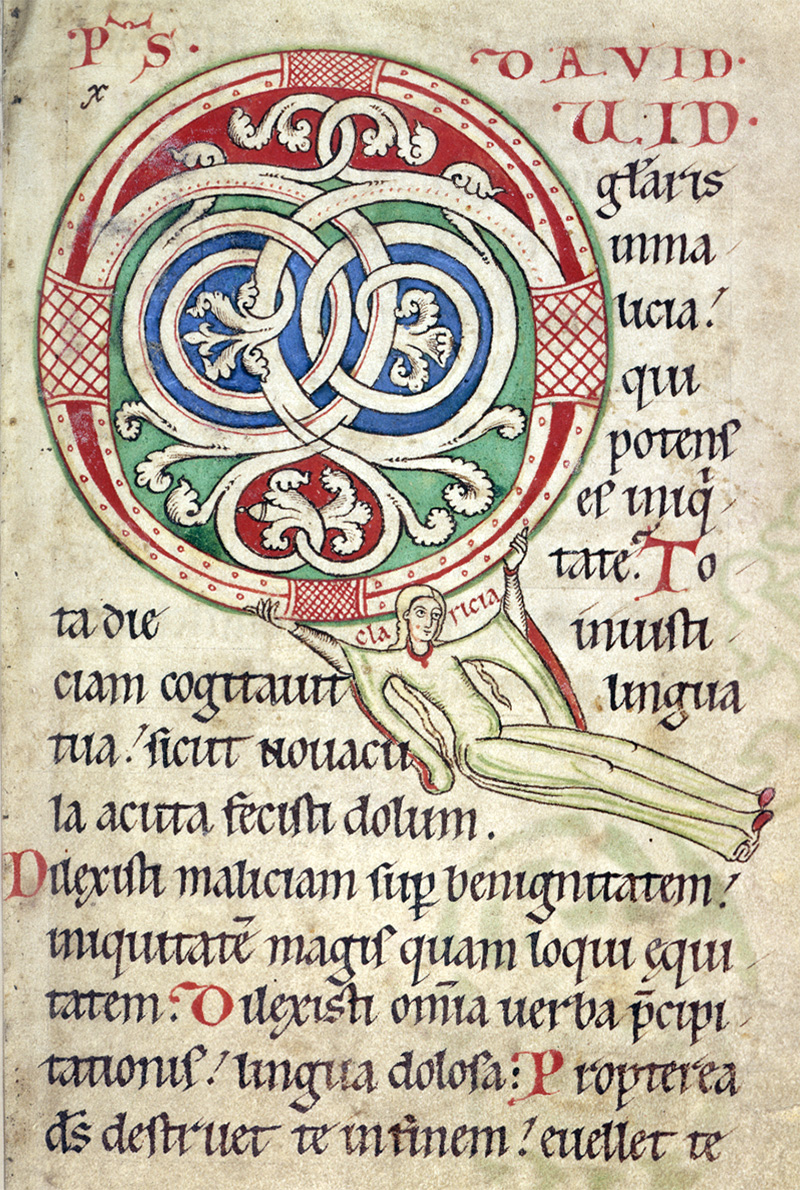 Pˢ S. DAVID.
x
QUID.
gl̄aris
inma
licia!
qui
potens
es iniq̇
tate. To
ta die iniusti
claricia
ciam cogitauit lingua
tua! sicut nouacu
la acuta fecisti dolum.
Dilęxisti maliciam sup̱ benignitatem!
iniquitatē magis quam loqui ęqui
tatem. Dilęxisti om̄ia uerba p̄cipi
tationis! lingua dolosa: Propterea
d̄s destruet te infinem! euellet te